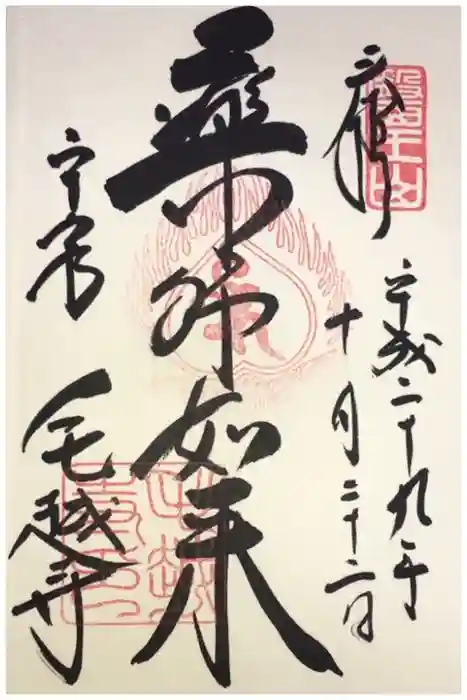 奉拝
醫王山
平成二十九年
十月二十二日
薬師如来
平泉
毛越寺